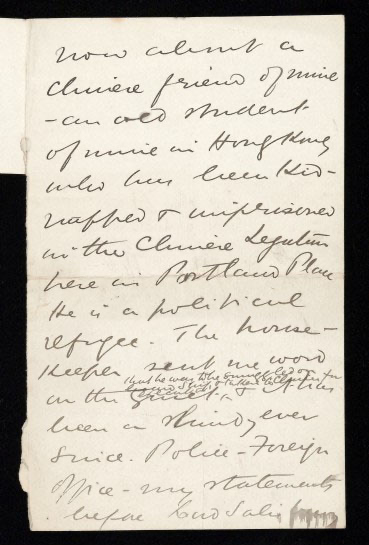 now about a
Chinese friend of mine
- an old student
of mine in Hong Kong
who has been kid-
napped & imprisoned
in the Chinese Legation
here in Portland Place
He is a political
refugee. The house-
keeper sent me word
that he was to be smuggled off
on the quiet. I have
been on the move ever
since. Police - Foreign
office - my statements
before Lord Salis